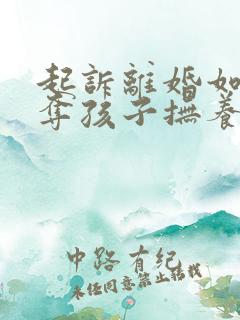 起訴離婚如
奪孩子撫養
中路有纪
未经同意禁止转载